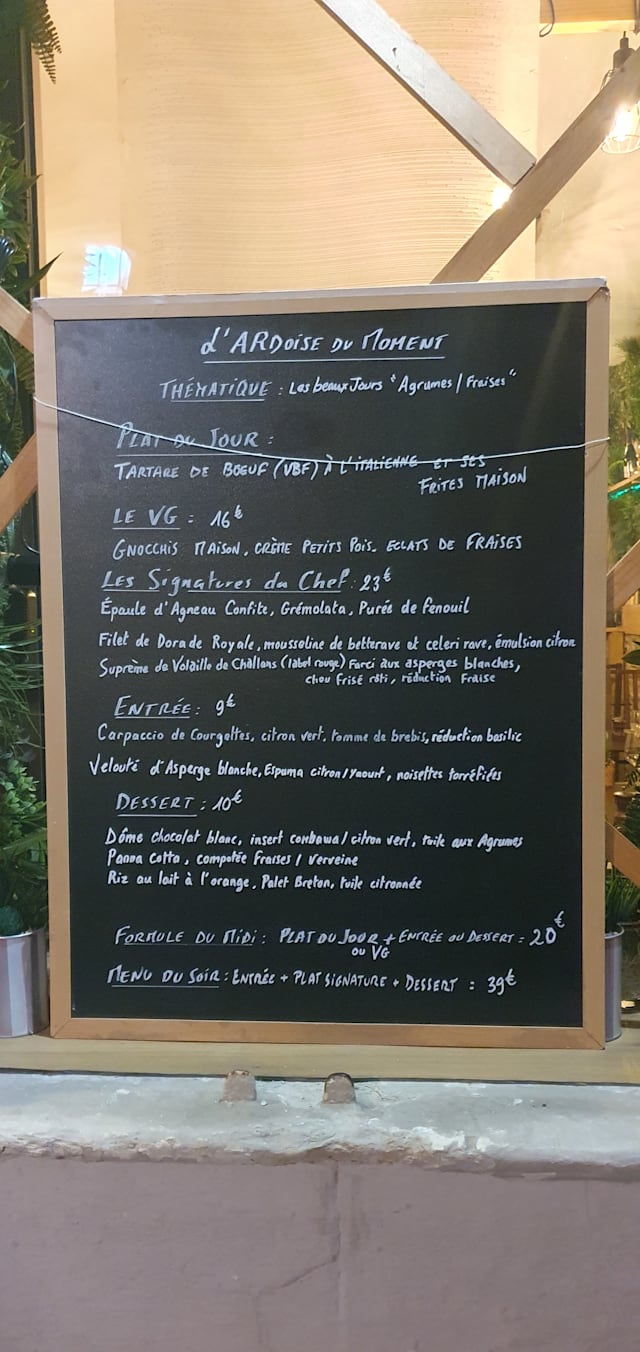 d'ARDOISE DU MOMENT
THÉMATIQUE : Les beaux Jours "Agrumes / Fraises"
PLAT DU JOUR :
TARTARE DE BOEUF (VBF) À L'ITALIENNE ET SES
FRITES MAISON
LE VG : 16€
GNOCCHIS MAISON, CRÈME PETITS POIS. ECLATS DE FRAISES
Les Signatures du Chef : 23€
Épaule d'Agneau Confite, Grémolata, Purée de fenouil
Filet de Dorade Royale, mousseline de betterave et celeri rave, émulsion citron
Suprème de Volaille de Challans (label rouge) Farci aux asperges blanches,
chou Frisé rôti, réduction Fraise
ENTRÉE : 9€
Carpaccio de Courgettes, citron vert, tomme de brebis, réduction basilic
Velouté d'Asperge blanche, Espuma citron/Yaourt, noisettes torréfiées
DESSERT : 10€
Dôme chocolat blanc, insert combawa / citron vert, tuile aux Agrumes
Panna Cotta, compotée Fraises / Verveine
Riz au lait à l'orange, Palet Breton, tuile citronnée
FORMULE DU MIDI : PLAT DU JOUR + ENTRÉE OU DESSERT = 20€
OU VG
MENU DU SOIR : ENTRÉE + PLAT SIGNATURE + DESSERT = 39€